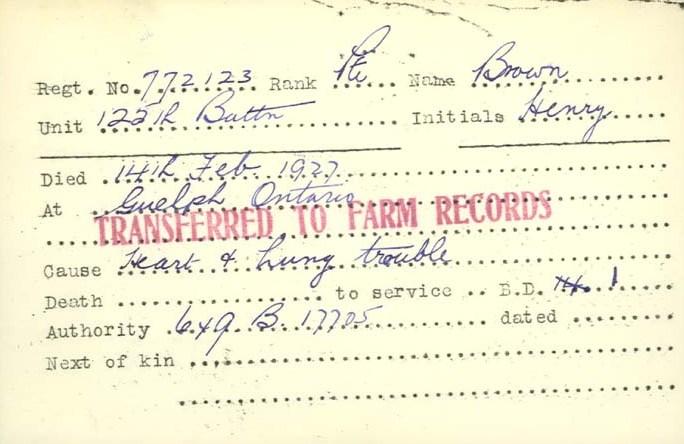 Regt. No. 772123 Rank Pte Name Brown
Unit 125th Battn Initials Henry
Died 14th Feb. 1927
At Guelph Ontario
TRANSFERRED TO FARM RECORDS
Cause Heart & Lung trouble
Death to service B.D. 1
Authority 649 B. 17705 dated
Next of kin